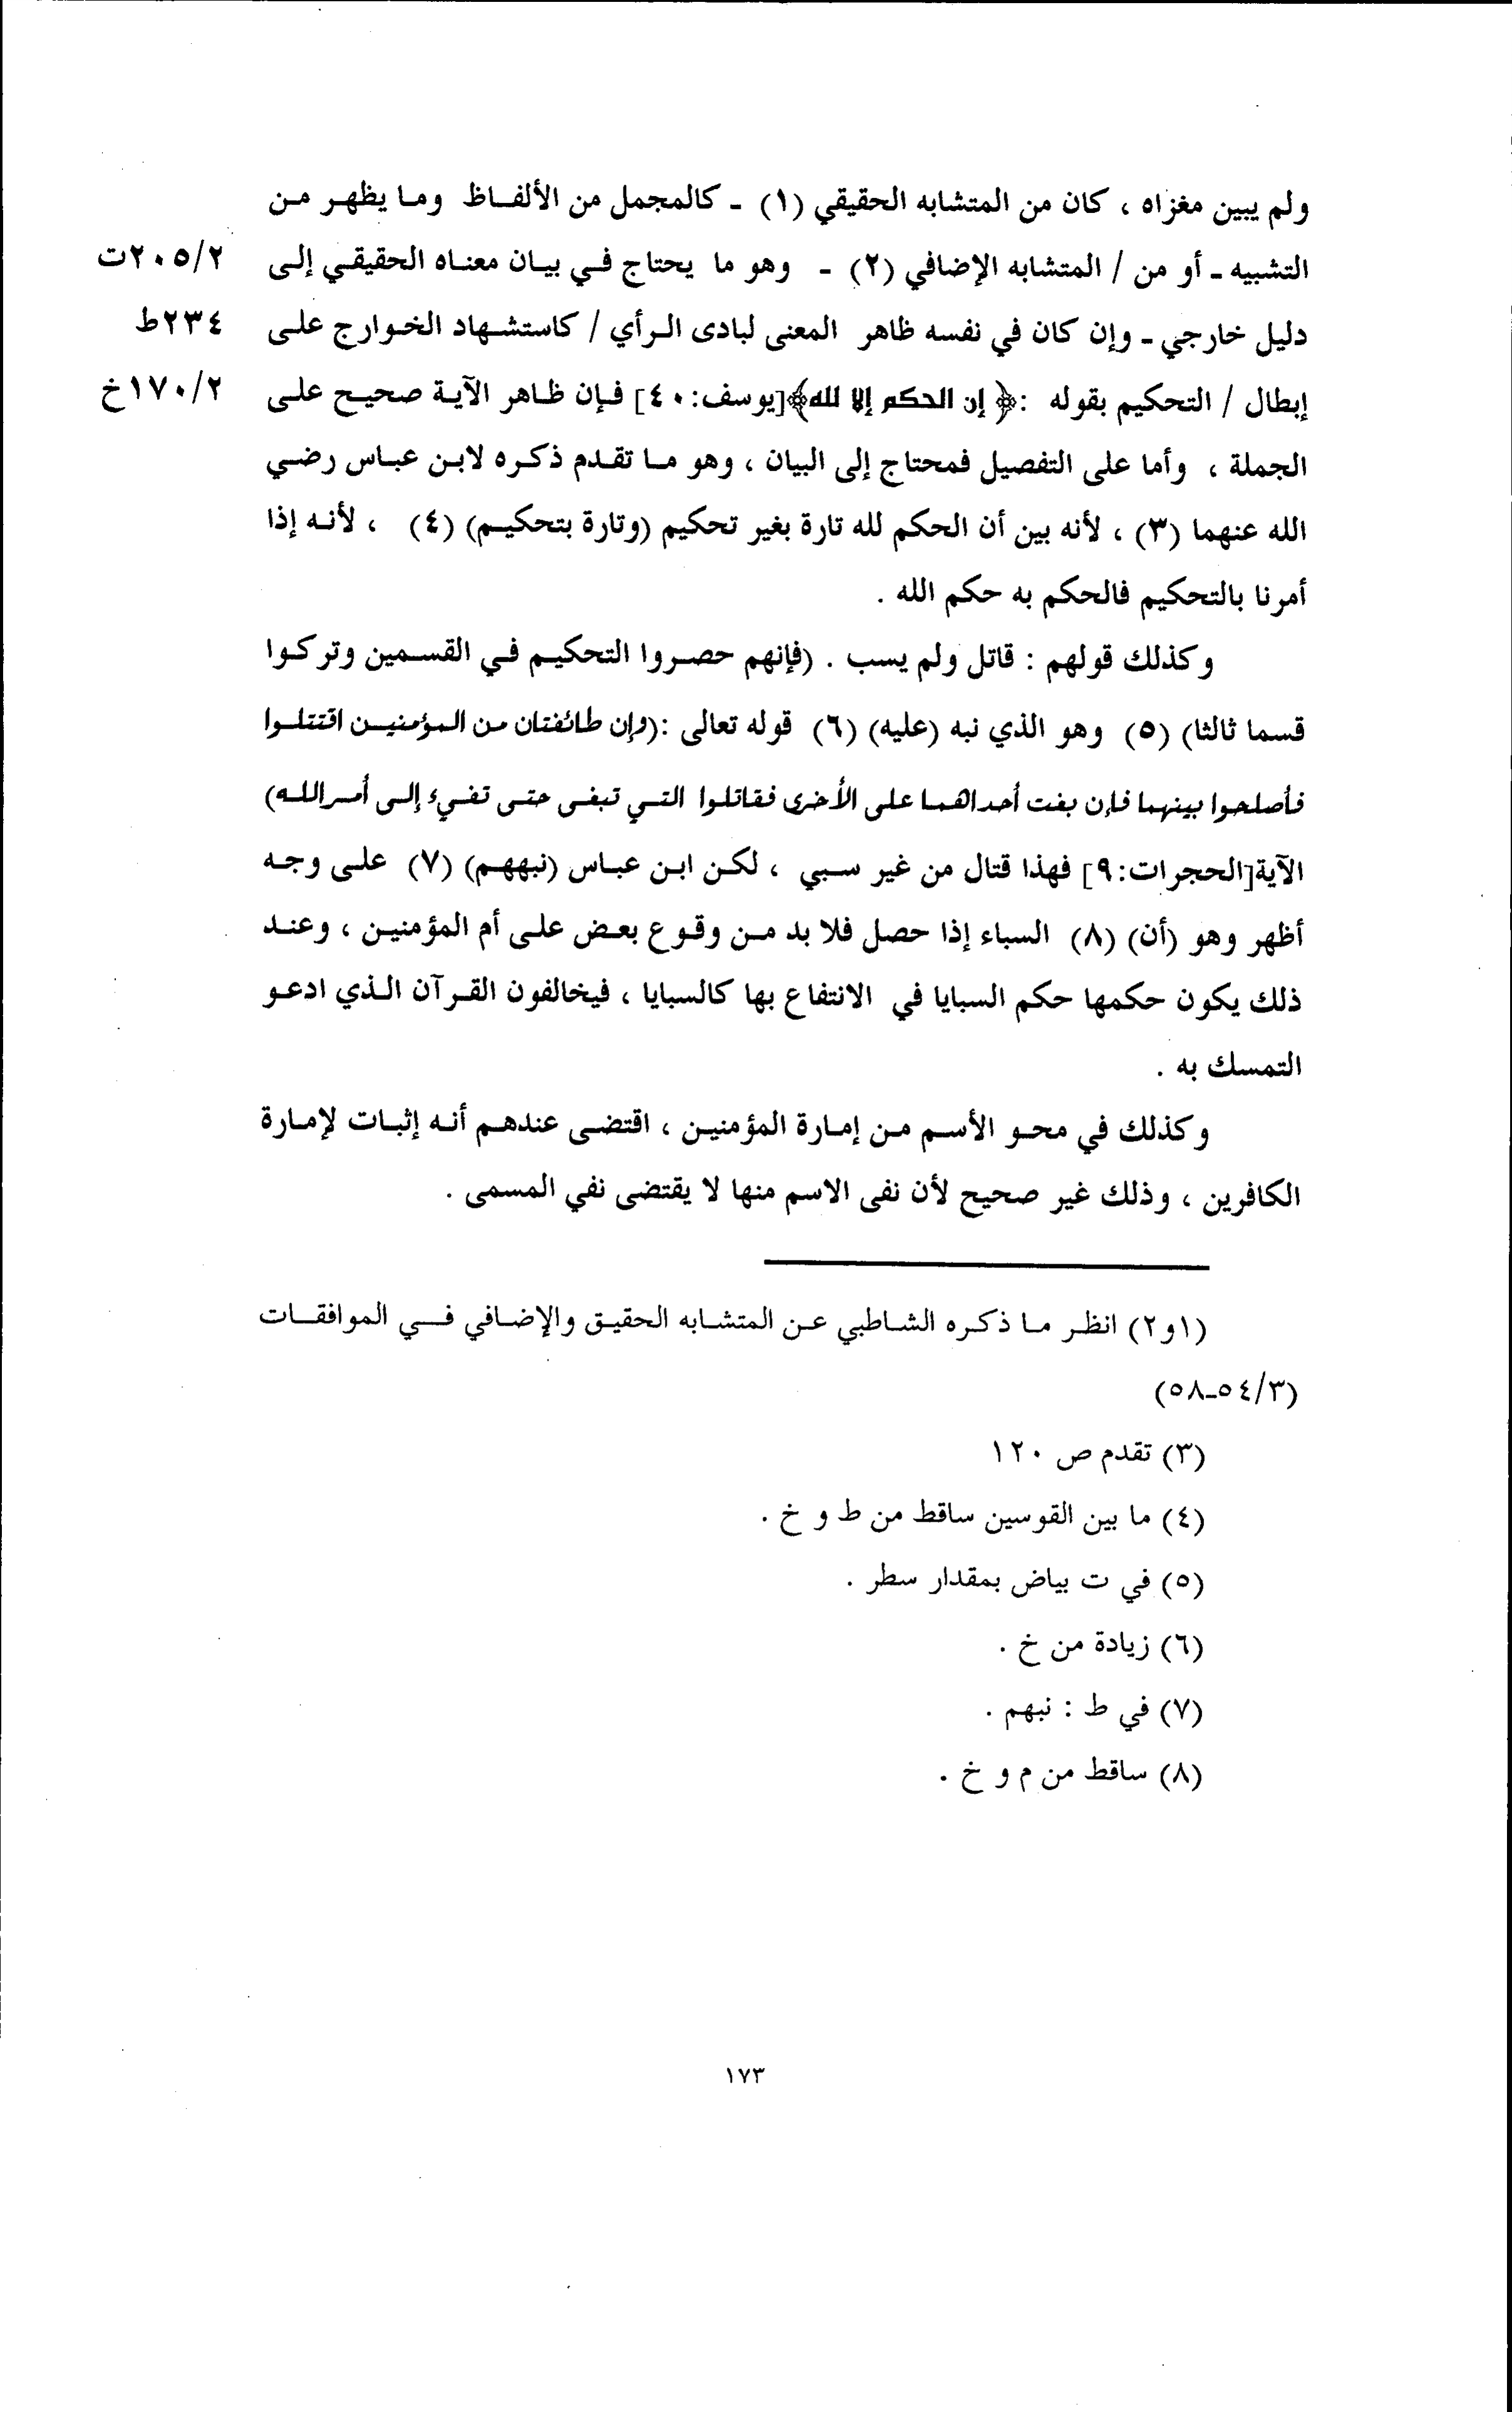 ولم يبين مغزاه ، كان من المتشابه الحقيقي (١) ـ كالمجمل من الألفاظ وما يظهر من
التشبيه ـ أو من / المتشابه الإضافي (٢) ـ وهو ما يحتاج في بيان معناه الحقيقي إلى ٢٠٥/٢ت
دليل خارجي ـ وإن كان في نفسه ظاهر المعنى لبادى الرأي / كاستشهاد الخوارج على ٢٣٤ط
إبطال / التحكيم بقوله :﴿ إن الحكم إلا لله﴾[يوسف:٤٠] فإن ظاهر الآية صحيح على ١٧٠/٢خ
الجملة ، وأما على التفصيل فمحتاج إلى البيان ، وهو ما تقدم ذكره لابن عباس رضي
الله عنهما (٣) ، لأنه بين أن الحكم لله تارة بغير تحكيم (وتارة بتحكيم) (٤) ، لأنه إذا
أمرنا بالتحكيم فالحكم به حكم الله .
وكذلك قولهم : قاتل ولم يسب . (فإنهم حصروا التحكيم في القسمين وتركوا
قسما ثالثا) (٥) وهو الذي نبه (عليه) (٦) قوله تعالى :(وإن طائفتان من المؤمنين اقتتلوا
فأصلحوا بينهما فإن بغت أحداهما على الأخرى فقاتلوا التي تبغى حتى تفيء إلى أمرالله)
الآية[الحجرات:٩] فهذا قتال من غير سبي ، لكن ابن عباس (نبههم) (٧) على وجه
أظهر وهو (أن) (٨) السباء إذا حصل فلا بد من وقوع بعض على أم المؤمنين ، وعند
ذلك يكون حكمها حكم السبايا في الانتفاع بها كالسبايا ، فيخالفون القرآن الذي ادعو
التمسك به .
وكذلك في محو الأسم من إمارة المؤمنين ، اقتضى عندهم أنه إثبات لإمارة
الكافرين ، وذلك غير صحيح لأن نفى الاسم منها لا يقتضى نفي المسمى .
(١و٢) انظر ما ذكره الشاطبي عن المتشابه الحقيق والإضافي في الموافقات
(٣/٥٤ـ٥٨)
(٣) تقدم ص ١٢٠
(٤) ما بين القوسين ساقط من ط و خ .
(٥) في ت بياض بمقدار سطر .
(٦) زيادة من خ .
(٧) في ط : نبهم .
(٨) ساقط من م و خ .
١٧٣